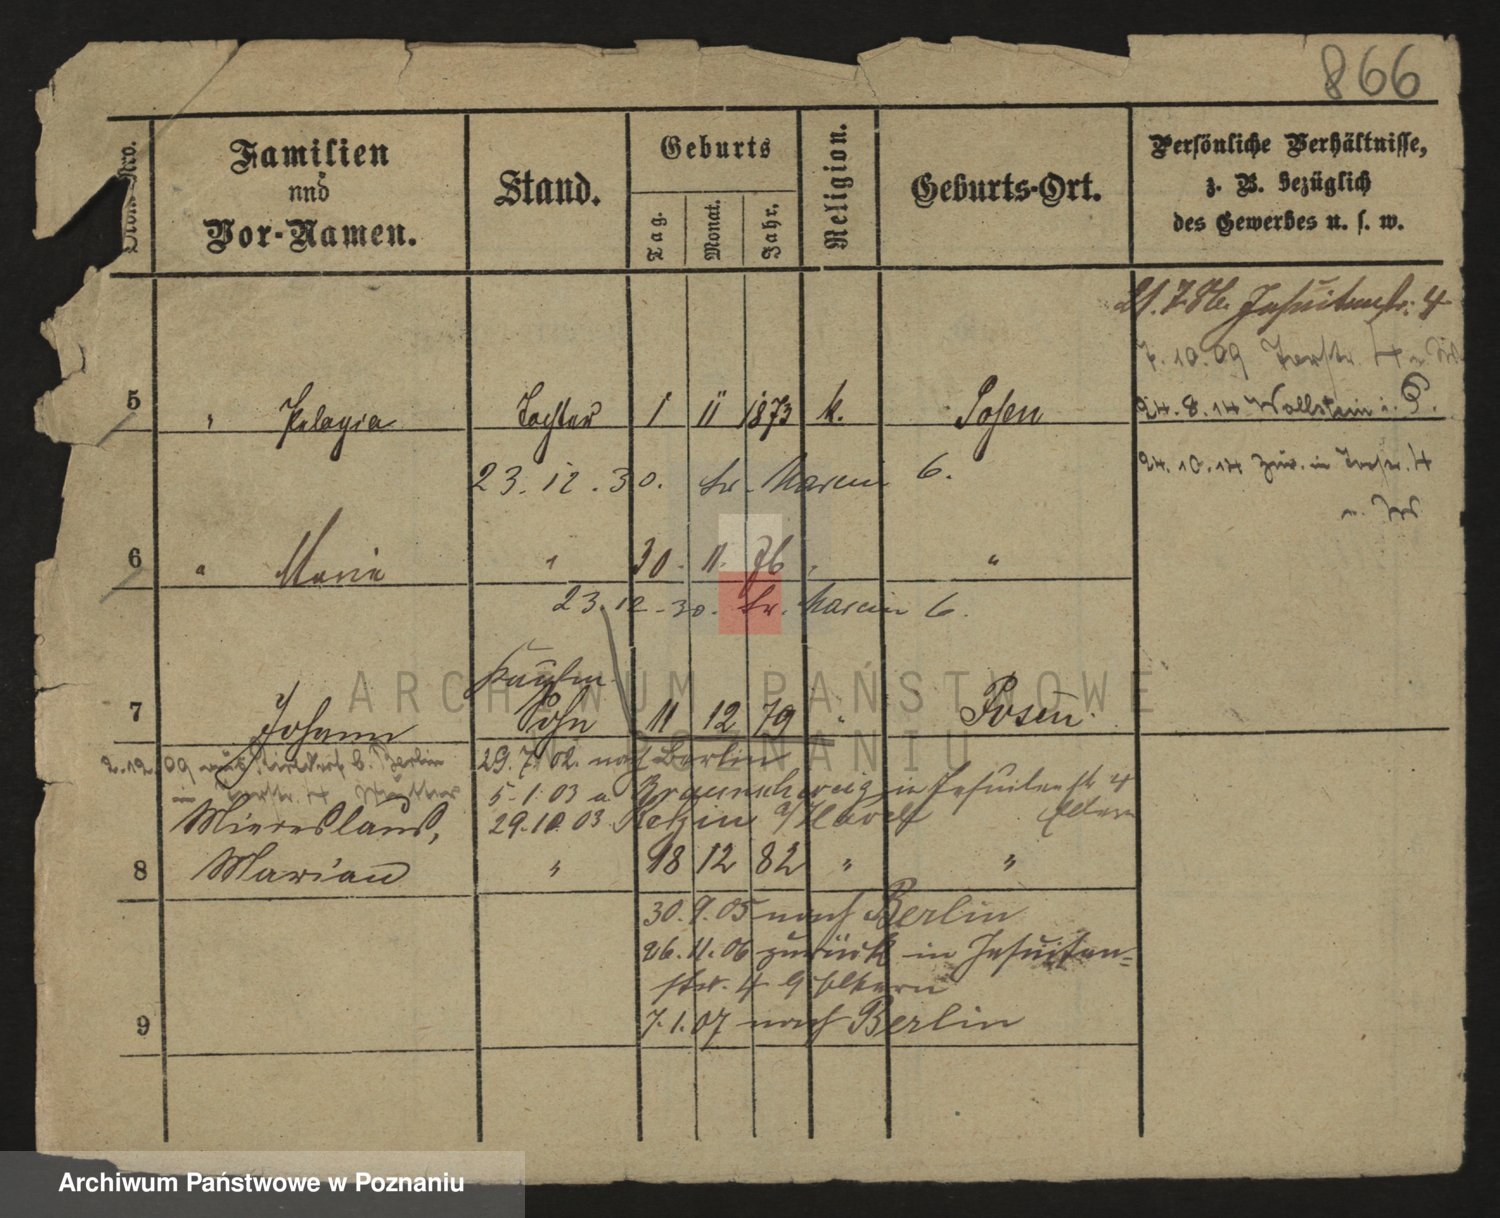 866
Ordn. Nro.
Familien
und
Vor-Namen.
Stand.
Geburts
Tag.
Monat.
Jahr.
Religion.
Geburts-Ort.
Persönliche Verhältnisse,
z. B. bezüglich
des Gewerbes u. s. w.
Jesuitenstr. 4
7. 10. 09
24. 8. 14 Wollstein i. P.
24. 10. 14 zur. in 4
5 " Pelagia Tochter 1 11 1873 k. Posen
23. 12. 30. św. Marcin 6.
6 " Maria " 30. 11. 76 " "
23. 12. 30. św. Marcin 6.
Kaufm.
7 Johann Sohn 11 12 79 " Posen.
2. 12. 09 b. Berlin
29. 7. 02. nach Berlin
5. 1. 03 a Braunschweig in Jesuitenstr 4
Eltern
29. 10. 03 Ketzin a/Havel
Mieceslaus,
8 Marian " 18 12 82 " "
30. 9. 05 nach Berlin
26. 11. 06 zurück in Jesuiten-
str. 4 Eltern
7. 1. 07 nach Berlin
9
ARCHIWUM PAŃSTWOWE
W POZNANIU
Archiwum Państwowe w Poznaniu